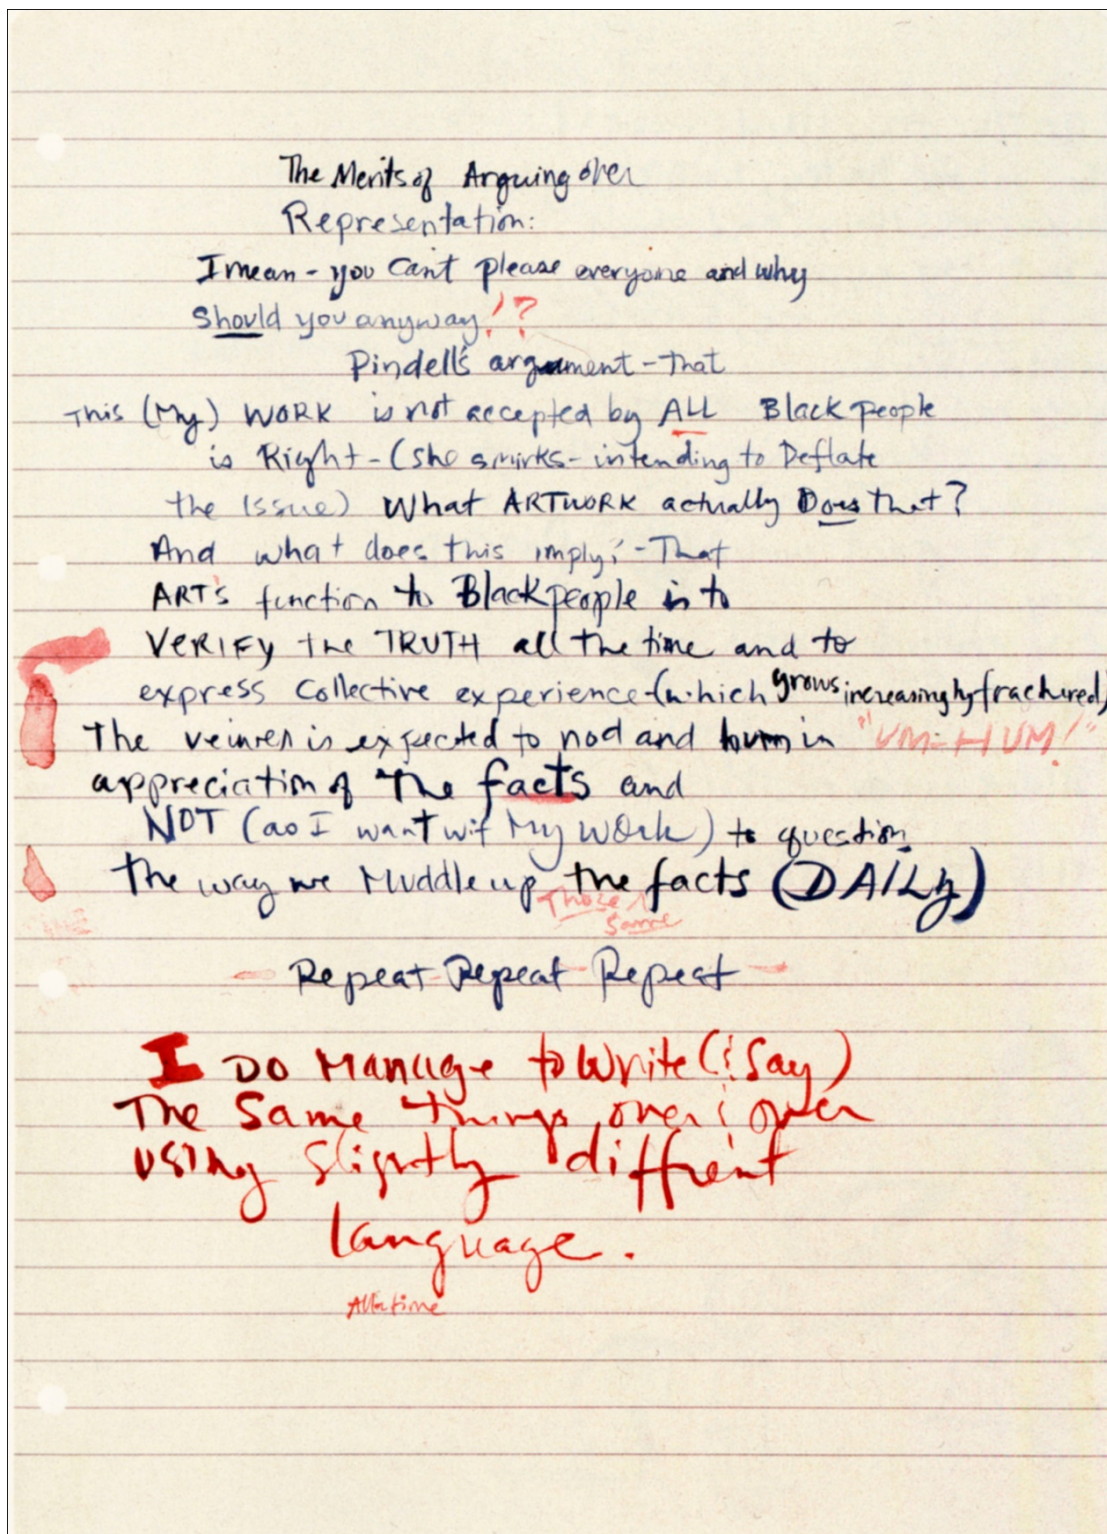 The Merits of Arguing over
Representation:
I mean - you Can't please everyone and why
Should you anyway!?
Pindell's argument - That
This (My) WORK is not accepted by ALL Black people
is Right - (she smirks - intending to Deflate
the Issue) What ARTWORK actually Does that?
And what does this imply? - That
ART's function to Black people is to
VERIFY the TRUTH all the time and to
express Collective experience - (which grows increasingly fractured)
The veiwer is expected to nod and hum in "UM-HUM!"
appreciation of The facts and
NOT (as I want wit My Work) to question
The way we Muddle up the facts (DAILY)
Those
Same
Repeat - Repeat - Repeat
I DO Manage to Write (& Say)
The Same things over & over
using slightly diffrent
language.
All a time